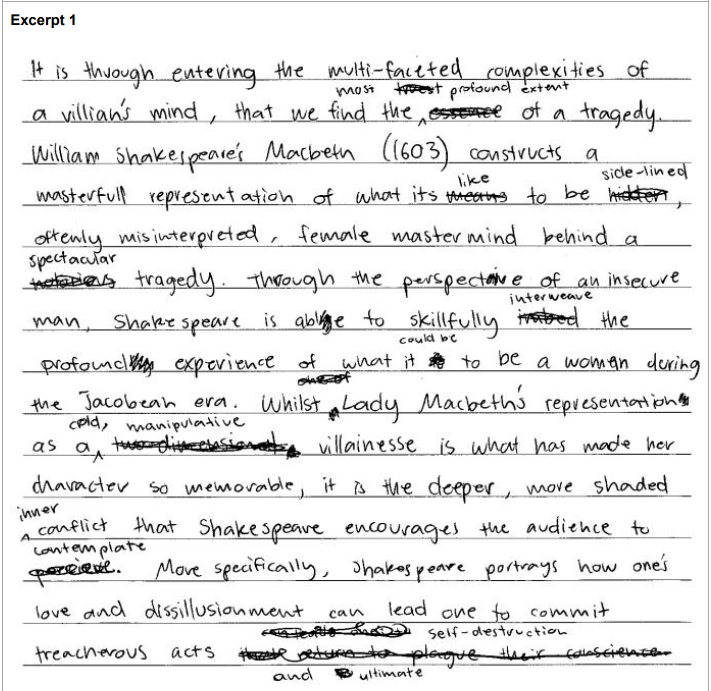 Excerpt 1
It is through entering the multi-faceted complexities of
most profound extent
a villian's mind, that we find the of a tragedy.
William Shakespeare's Macbeth (1603) constructs a
like side-lined
masterfull representation of what its means to be hidden,
oftenly misinterpreted, female mastermind behind a
spectacular
tragedy. Through the perspective of an insecure
interweave
man, Shakespeare is able to skillfully the
could be
profound experience of what it to be a woman during
the Jacobean era. Whilst Lady Macbeth's representation
cold, manipulative
as a two-dimensional villainesse is what has made her
character so memorable, it is the deeper, more shaded
inner
conflict that Shakespeare encourages the audience to
contemplate
More specifically, Shakespeare portrays how one's
love and dissillusionment can lead one to commit
self-destruction
treacherous acts return to plague their conscience
and ultimate